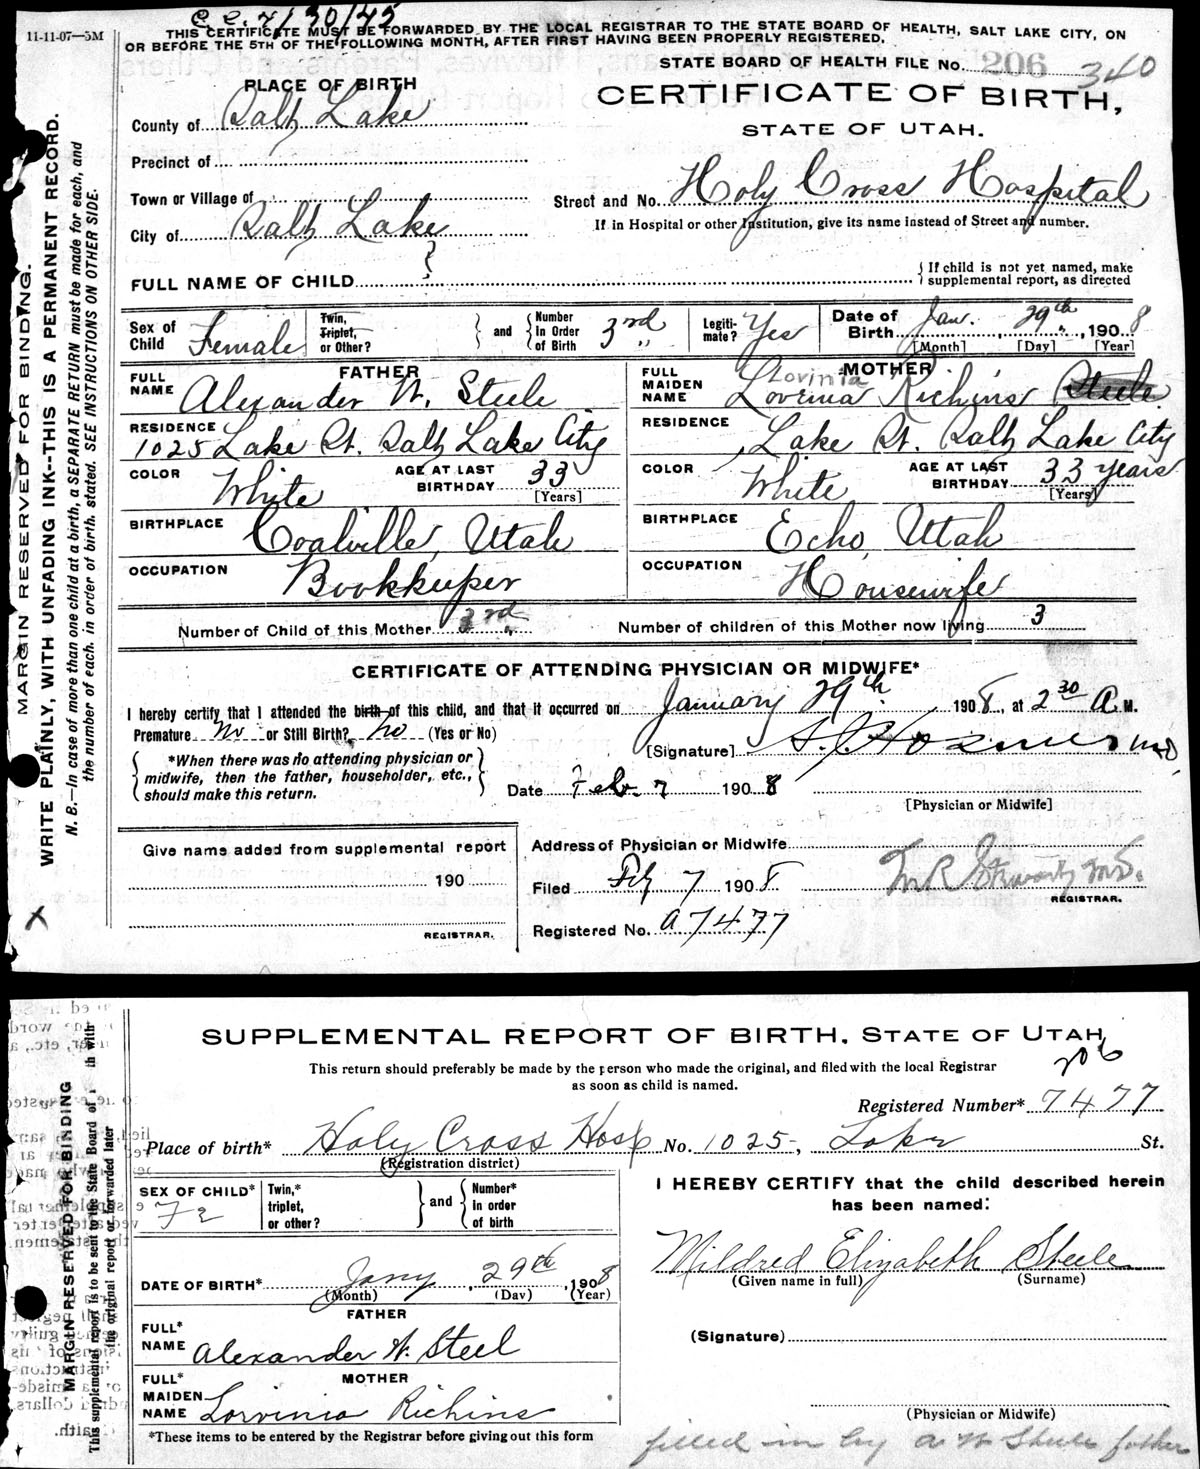 C.C. 4/30/45
11-11-07—5M
THIS CERTIFICATE MUST BE FORWARDED BY THE LOCAL REGISTRAR TO THE STATE BOARD OF HEALTH, SALT LAKE CITY, ON
OR BEFORE THE 5TH OF THE FOLLOWING MONTH, AFTER FIRST HAVING BEEN PROPERLY REGISTERED.
STATE BOARD OF HEALTH FILE No. 206 340
PLACE OF BIRTH
CERTIFICATE OF BIRTH,
STATE OF UTAH.
County of Salt Lake
Precinct of
Town or Village of
Street and No. Holy Cross Hospital
City of Salt Lake
If in Hospital or other Institution, give its name instead of Street and number.
FULL NAME OF CHILD
{ If child is not yet named, make
supplemental report, as directed
Sex of Child Female
Twin, Triplet, or Other? } and { Number In Order of Birth 3rd
Legiti-mate? Yes
Date of Birth Jan. 29th, 1908
[Month] [Day] [Year]
FATHER
FULL NAME Alexander W. Steele
RESIDENCE 1025 Lake St. Salt Lake City
COLOR White
AGE AT LAST BIRTHDAY 33
[Years]
BIRTHPLACE Coalville, Utah
OCCUPATION Bookkeeper
MOTHER
Lovinia
FULL MAIDEN NAME Lovenia Richins Steele
RESIDENCE Lake St. Salt Lake City
COLOR White
AGE AT LAST BIRTHDAY 33 years
[Years]
BIRTHPLACE Echo, Utah
OCCUPATION Housewife
Number of Child of this Mother 3rd
Number of children of this Mother now living 3
CERTIFICATE OF ATTENDING PHYSICIAN OR MIDWIFE*
I hereby certify that I attended the birth of this child, and that it occurred on January 29th. 1908, at 2 30 A M.
Premature No or Still Birth? No (Yes or No)
[Signature]
*When there was no attending physician or
midwife, then the father, householder, etc.,
should make this return.
Date Feb. 7 1908
[Physician or Midwife]
Give name added from supplemental report
190
REGISTRAR.
Address of Physician or Midwife
Filed Feb 7 1908
REGISTRAR.
Registered No. a7477
X
MARGIN RESERVED FOR BINDING.
WRITE PLAINLY, WITH UNFADING INK--THIS IS A PERMANENT RECORD.
N. B.—In case of more than one child at a birth, a SEPARATE RETURN must be made for each, and
the number of each, in order of birth, stated. SEE INSTRUCTIONS ON OTHER SIDE.
SUPPLEMENTAL REPORT OF BIRTH, STATE OF UTAH.
206
This return should preferably be made by the person who made the original, and filed with the local Registrar
as soon as child is named.
Registered Number* 7477
Place of birth* Holy Cross Hosp No. 1025, Lake St.
(Registration district)
SEX OF CHILD* Fe
Twin,* triplet, or other? } and { Number* In order of birth
DATE OF BIRTH* Jany 29th, 1908
(Month) (Day) (Year)
FATHER
FULL* NAME Alexander W. Steel
MOTHER
FULL* MAIDEN NAME Lorvinia Richins
*These items to be entered by the Registrar before giving out this form
I HEREBY CERTIFY that the child described herein
has been named:
Mildred Elizabeth Steele
(Given name in full) (Surname)
(Signature)
(Physician or Midwife)
filled in by A W Steele father
MARGIN RESERVED FOR BINDING
This supplemental report is to be sent to the State Board of
the original report or forwarded later